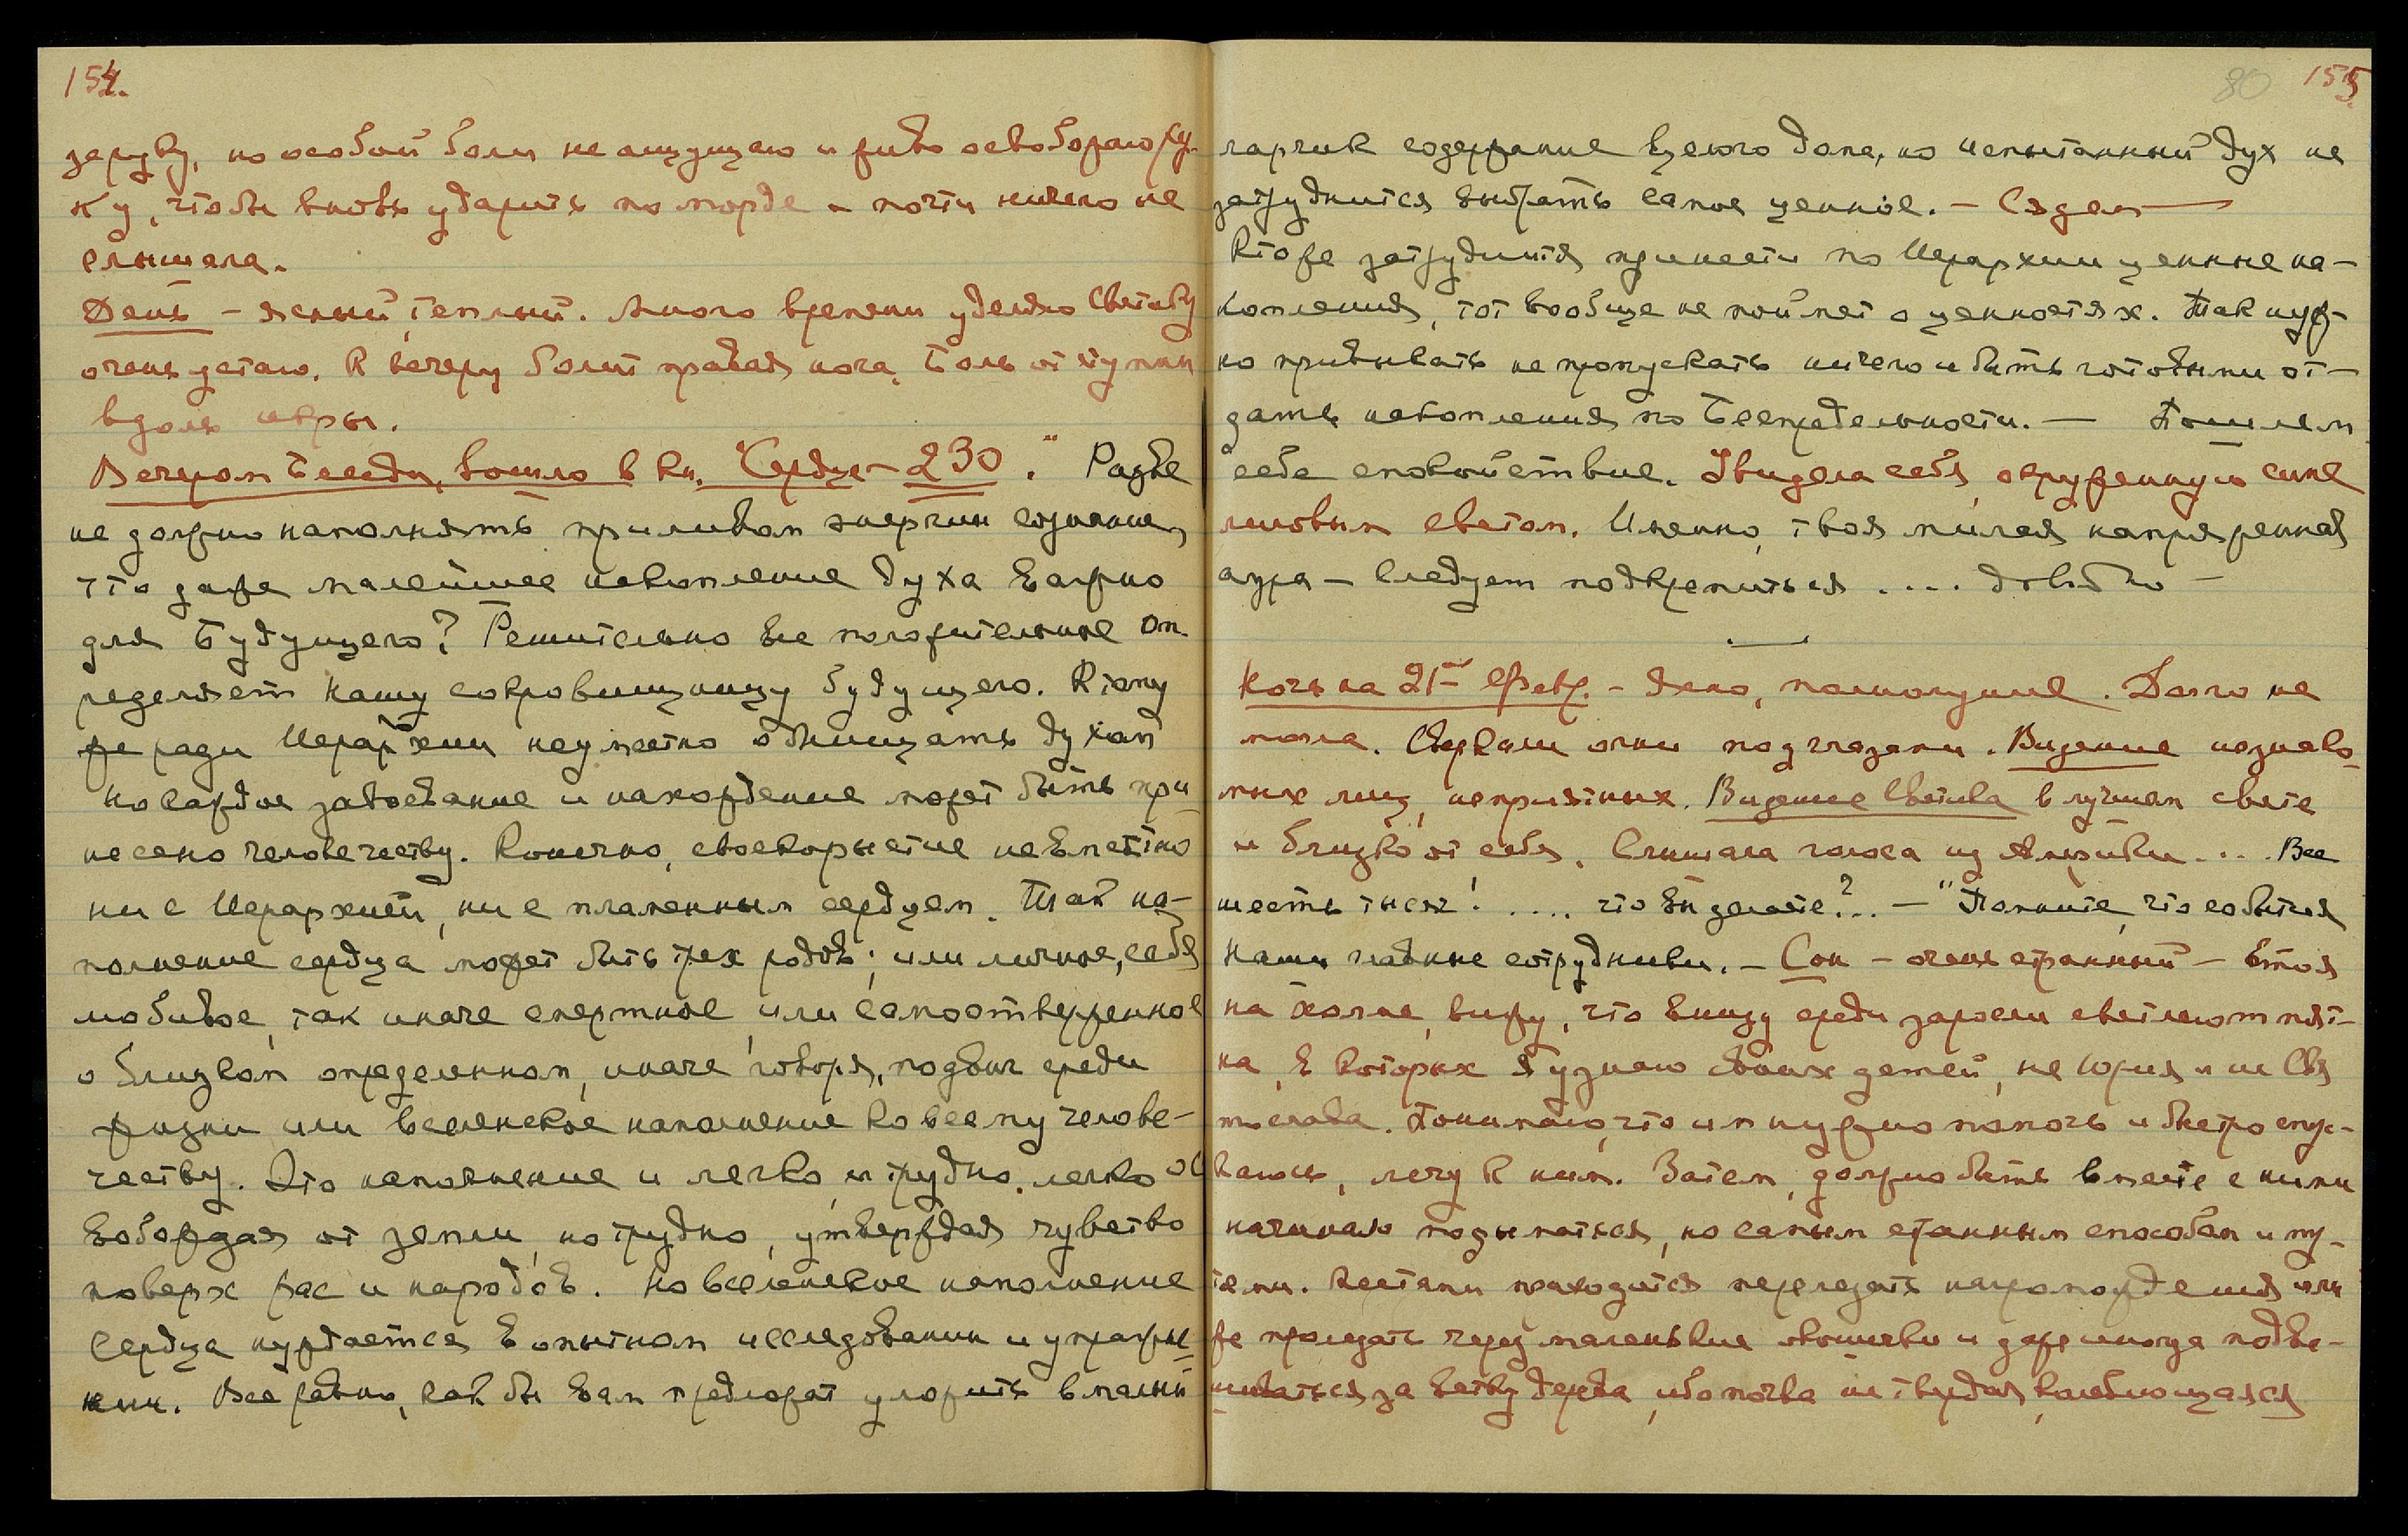 154.
за руку, но особой боли не ощущаю и живо освобораю ру-
ку, чтобы вновь ударить по морде – почти ничего не
слышала.
День – ясный, теплый. Много времени уделяю Светику
очень устаю. К вечеру болит правая нога. Боль от ступни
вдоль икры.
Вечером Беседы, вошло в кн. "Сердце – 230." Разве
не должно наполнять приливом энергии сознание,
что даже малейшее накопление духа важно
для Будущего? Решительно все положительное оп-
ределяет нашу сокровищницу будущего. К тому
же ради Иерархии неуместно обнищать духом
но каждое завоевание и нахождение может быть при-
несено человечеству. Конечно, своекорыстие невместно
ни с Иерархией, ни с пламенным сердцем. Так на-
полнение сердца может быть трех родов: или личное, себя
любивое, так иначе смертное, или самоотверженное
о близком определенном, иначе говоря, подвиг среди
жизни или вселенское наполнение ко всему челове-
честву. Это наполнение и легко, и трудно, легко ос
вобождая от земли, но трудно, утверждая чувство
поверх рас и народов. Но вселенское наполнение
Сердца нуждается в опытном исследовании и упражне-
нии. Все равно, как бы вам предложат уложить в малый
80 155
ларчик содержание целого дома, но испытанный дух не
затруднится выбрать самое ценное. –
Кто же затрудится принести по Иерархии ценные на-
копления, тот вообще не поймет о ценностях. Так нуж-
но привыкать не пропускать ничего и быть готовыми от-
дать накопления по Беспредельности. – Пошлем
себе спокойствие. Увидела себя, окруженную сине
лиловым светом. Именно, твоя милая напряженная
аура – Следует подкрепиться .... довольно –
Ночь на 21-ое Февр. – Ясно, полнолуние. Долго не
могла. Сверкали огни под глазами. Видение незнако-
мых лиц, неприятных. Видение Светика в лучшем свете
и близко от себя. Слышала голоса из Америки .... Все
шесть тысяч! .... что вы делаете?.. – "Помните, что события
наши главные сотрудники. – Сон – очень странный – Стоя
на холме, вижу, что внизу среди заросли светлеют пят-
на, в которых я узнаю своих детей, не Юрия и не Свя
тослава. Понимаю, что им нужно помочь и быстро спус-
каюсь, лечу к ним. Затем, должно быть вместе с ними
начинаю подыматься, но самым странным способом и пу-
тями. Местами приходится перелезать нагромождения или
же пролезать через маленькие окошечки и даже иногда подве-
шиваться за ветку дерева, ибо почва не твердая, колеблющаяся